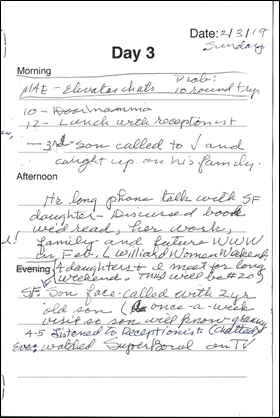 Date: 2/3/19
Sunday
Day 3
Morning
MAE - Elevator chats
Prob:
10 round trips
10 - Door mamma
12 - Lunch with receptionist
- 3rd son called to √ and
caught up on his family.
Afternoon
Hr long phone talk with SF
daughter - Discussed book
we'd read, her work,
family and future WWW
in Feb. (Williard Women Wakend.
Evening
4 daughters + I meet for long
weekend. This will be #20)
SF. Son face-called with 2 yr
old son (once-a-week
visit so son will know granny
4-5 Listened to Receptionist (chatted)
Eve: watched SuperBowl on TV